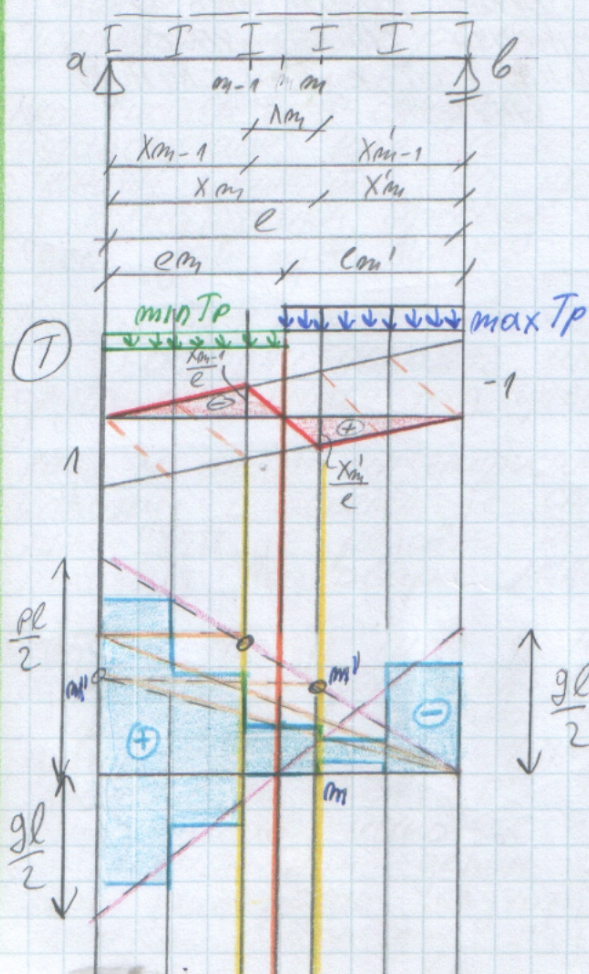 a b
m-1 m
λm
Xm-1 X'm-1
Xm X'm
l
lm lm'
min Tp max Tp
T
Xm-1/l
⊖
-1
⊕
1
X'm/l
pl/2
m' m''
gl/2
+
−
m
gl/2